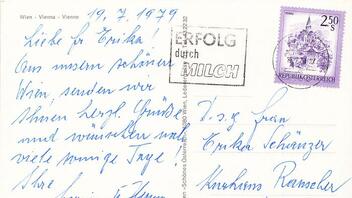 Wien - Vienna - Vienne
19. 7. 1979
Liebe Fr. Erika!
Aus unserm schönen
Wien, senden wir
Ihnen herzl. Grüße
und wünschen noch
viele sonnige Tage!
Ihre
ERFOLG
durch
MILCH
2.50
S
REPUBLIK ÖSTERREICH
Frau
Erika Schänzer
Kurhaus